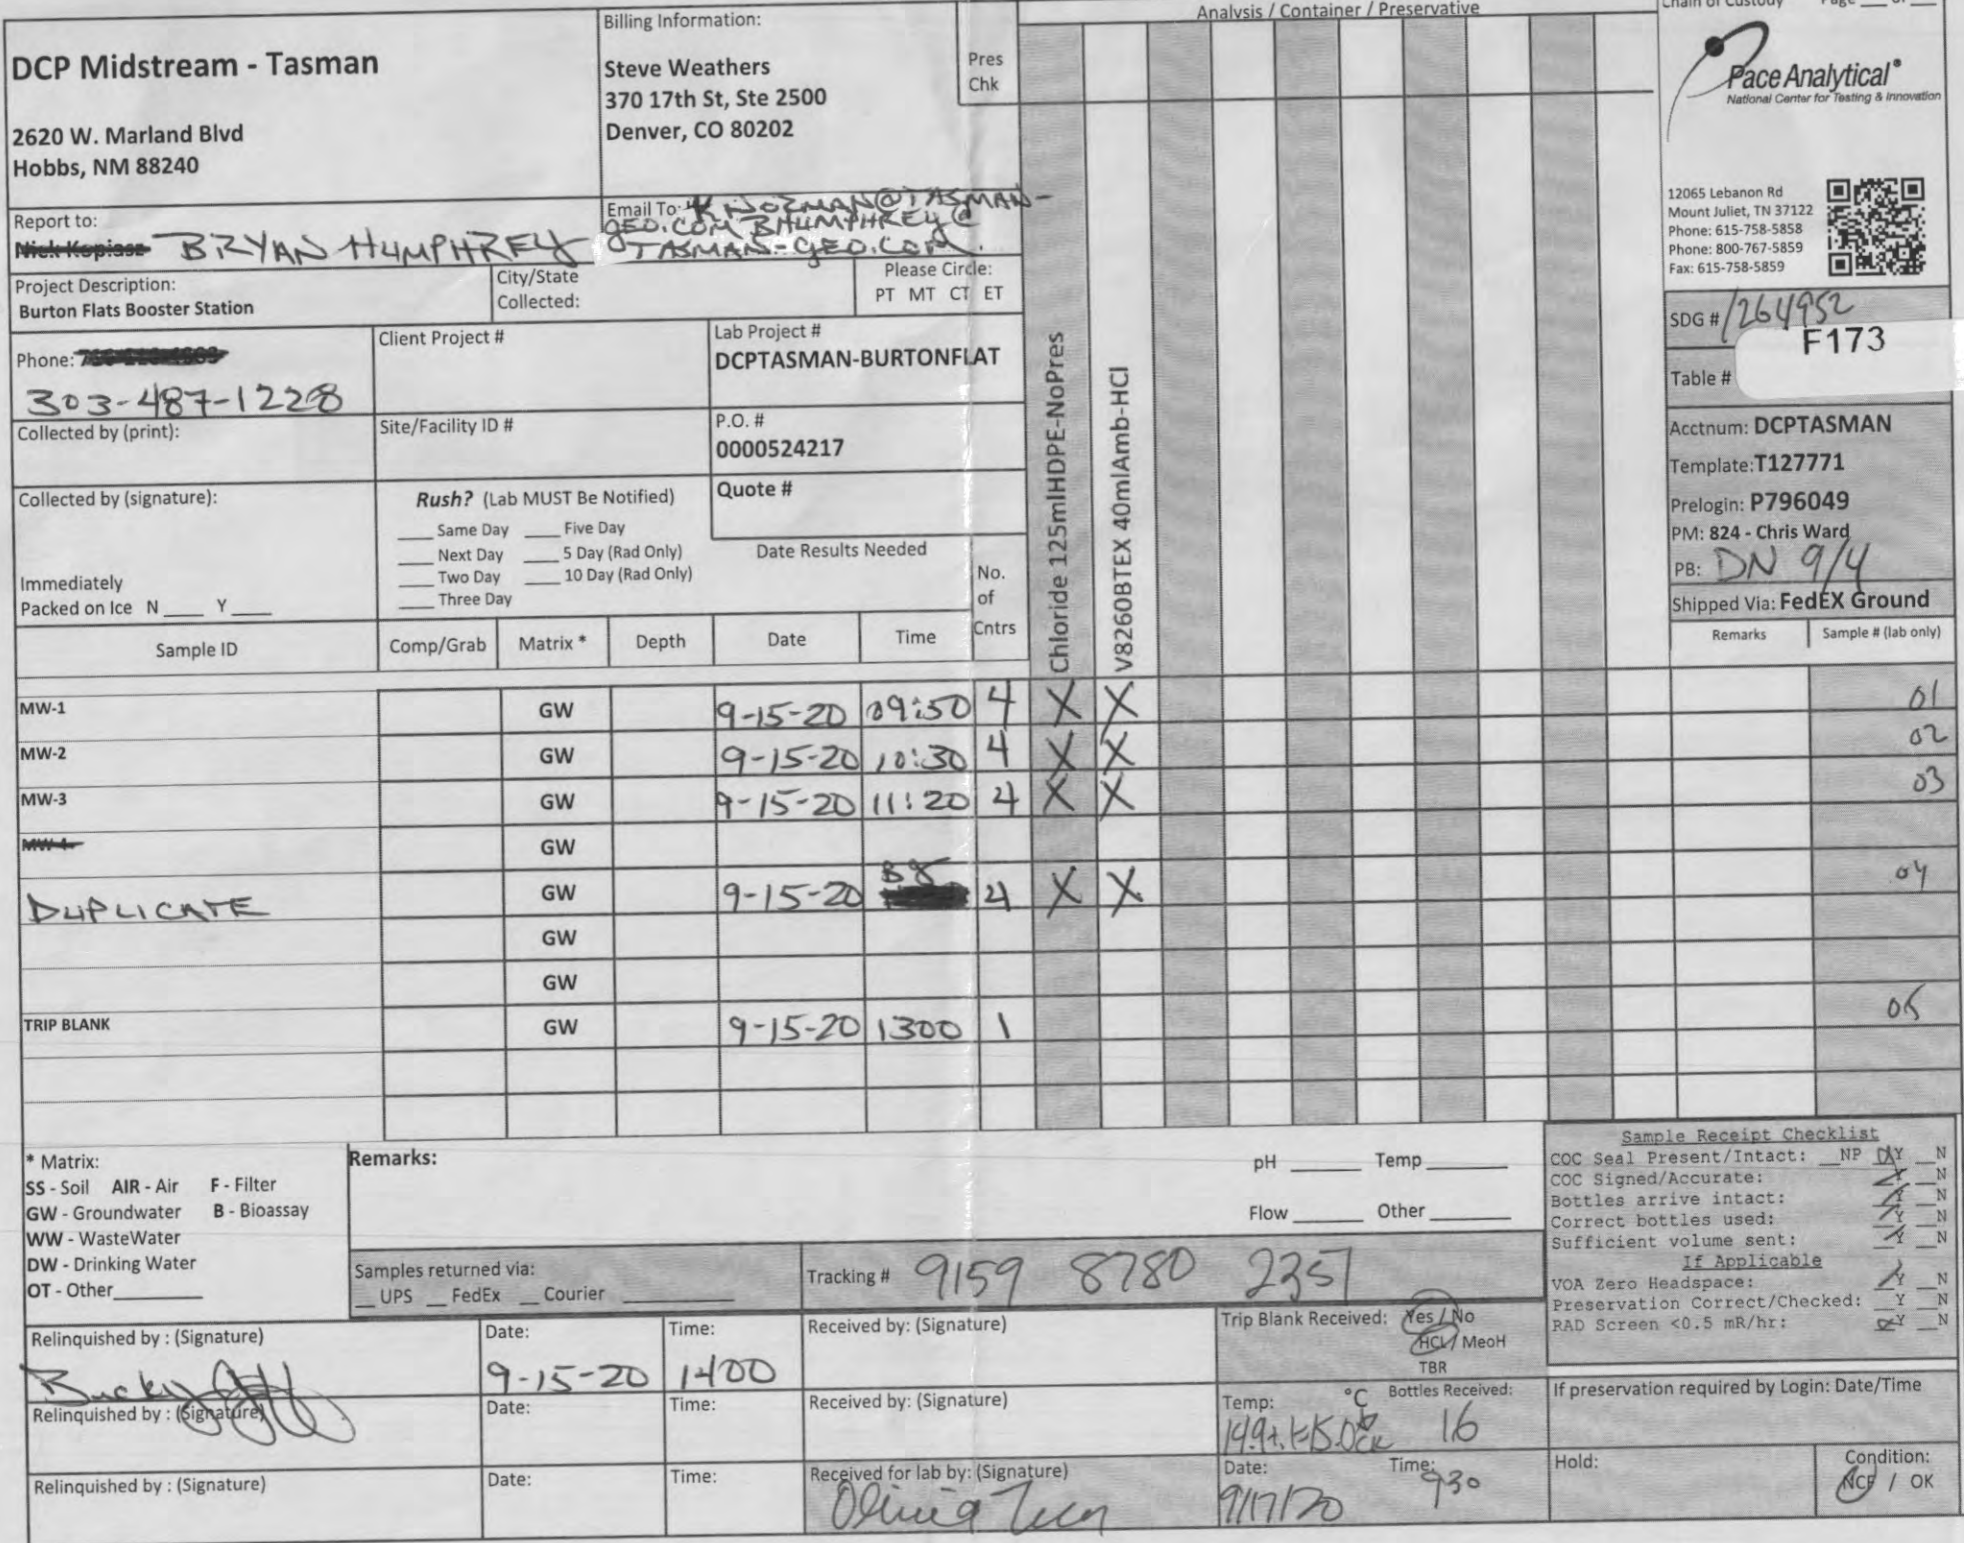 DCP Midstream - Tasman
2620 W. Marland Blvd
Hobbs, NM 88240
Billing Information:
Steve Weathers
370 17th St, Ste 2500
Denver, CO 80202
Pres
Chk
Analysis / Container / Preservative
Chain of Custody Page ___ of ___
Pace Analytical®
National Center for Testing & Innovation
12065 Lebanon Rd
Mount Juliet, TN 37122
Phone: 615-758-5858
Phone: 800-767-5859
Fax: 615-758-5859
Report to:
Nick Kopiasz BRYAN HUMPHREY
Email To: KNORMAN@TASMAN-
GEO.COM BHUMPHREY@
TASMAN-GEO.COM.
Project Description:
Burton Flats Booster Station
City/State
Collected:
Please Circle:
PT MT CT ET
Phone:
303-487-1228
Client Project #
Lab Project #
DCPTASMAN-BURTONFLAT
Collected by (print):
Site/Facility ID #
P.O. #
0000524217
Collected by (signature):
Rush? (Lab MUST Be Notified)
___ Same Day ___ Five Day
___ Next Day ___ 5 Day (Rad Only)
___ Two Day ___ 10 Day (Rad Only)
___ Three Day
Quote #
Date Results Needed
Immediately
Packed on Ice N ___ Y ___
No.
of
Cntrs
Chloride 125mlHDPE-NoPres
V8260BTEX 40mlAmb-HCl
SDG # 1264952
F173
Table #
Acctnum: DCPTASMAN
Template: T127771
Prelogin: P796049
PM: 824 - Chris Ward
PB: DN 9/4
Shipped Via: FedEX Ground
Sample ID Comp/Grab Matrix * Depth Date Time Remarks Sample # (lab only)
MW-1 GW 9-15-20 09:50 4 X X 01
MW-2 GW 9-15-20 10:30 4 X X 02
MW-3 GW 9-15-20 11:20 4 X X 03
MW-4 GW
DUPLICATE GW 9-15-20 4 X X 04
GW
GW
TRIP BLANK GW 9-15-20 1300 1 05
* Matrix:
SS - Soil AIR - Air F - Filter
GW - Groundwater B - Bioassay
WW - WasteWater
DW - Drinking Water
OT - Other___
Remarks:
pH ___ Temp ___
Flow ___ Other ___
Samples returned via:
__ UPS __ FedEx __ Courier ___
Tracking # 9159 8780 2351
Sample Receipt Checklist
COC Seal Present/Intact: __NP __Y __N
COC Signed/Accurate: __Y __N
Bottles arrive intact: __Y __N
Correct bottles used: __Y __N
Sufficient volume sent: __Y __N
If Applicable
VOA Zero Headspace: __Y __N
Preservation Correct/Checked: __Y __N
RAD Screen <0.5 mR/hr: __Y __N
Relinquished by : (Signature)
Date:
9-15-20
Time:
1400
Received by: (Signature)
Trip Blank Received: Yes / No
HCL / MeoH
TBR
Relinquished by : (Signature)
Date:
Time:
Received by: (Signature)
Temp: °C
Bottles Received:
16
If preservation required by Login: Date/Time
Relinquished by : (Signature)
Date:
Time:
Received for lab by: (Signature)
Date:
9/17/20
Time:
930
Hold:
Condition:
NCF / OK